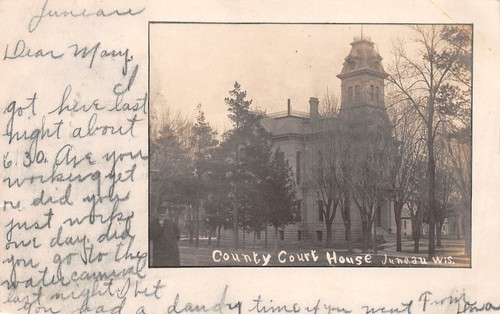 Juneau
Dear Mary,
I
got here last
night about
6.30. Are you
working yet
or did you
just work
one day. did
you go to the
water carnival
last night. I bet
you had a dandy time if you went From
County Court House Juneau Wis.